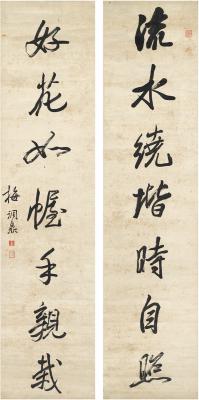 流水繞堦時自照
好花如幄手親栽
梅調鼎